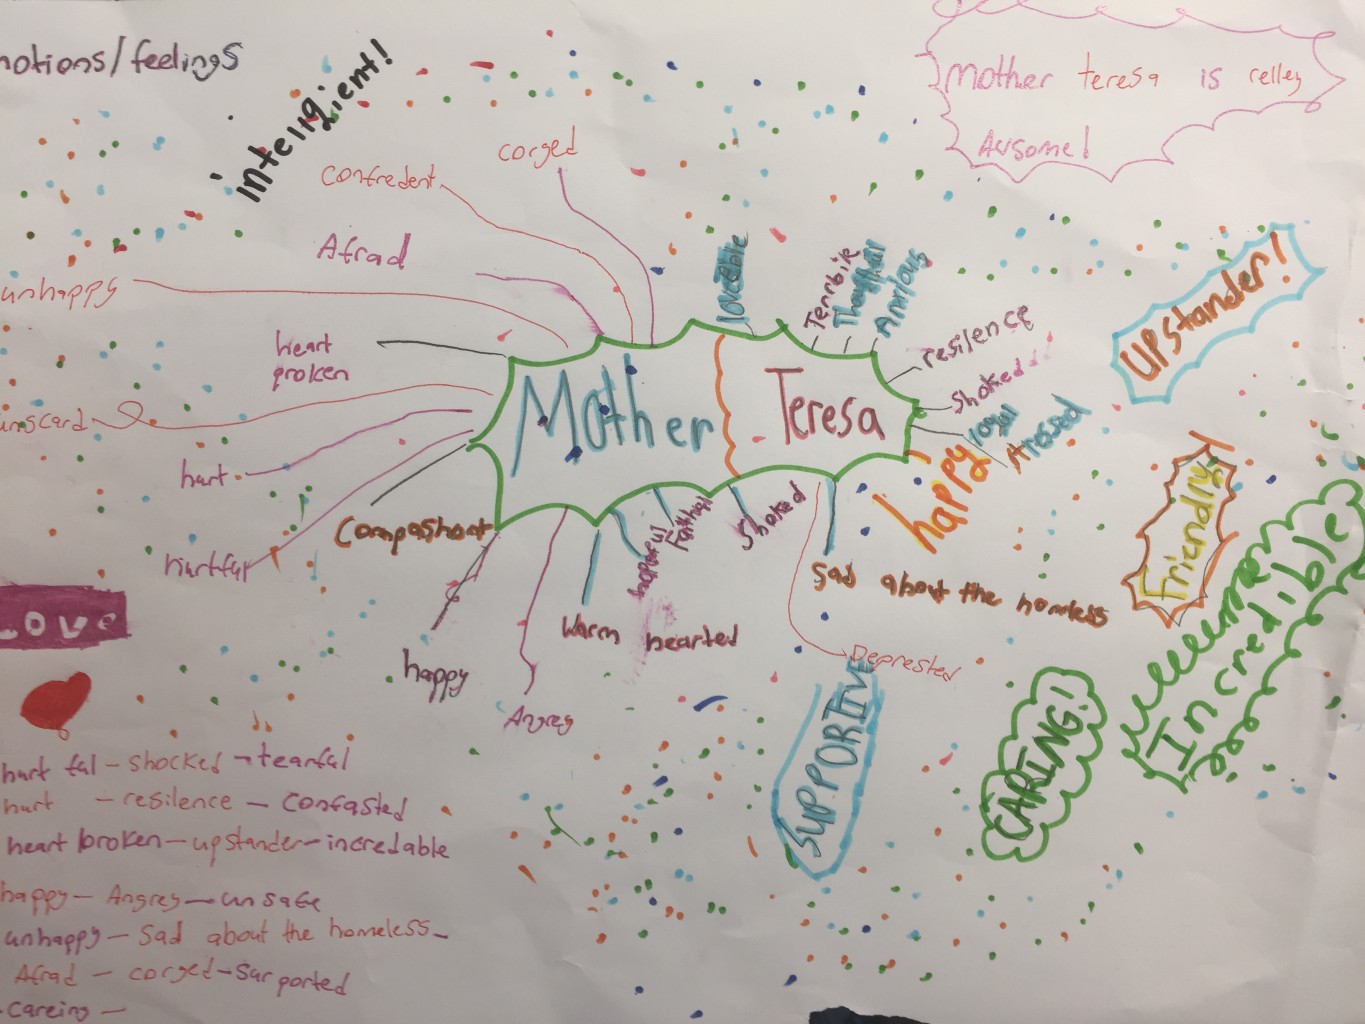 motions/feelings
intelligent!
Mother teresa is relley
Awsome!
corged
confredent
Afrad
unhappy
heart
proken
hurt
hurtful
Compashont
happy
Angrey
Warm hearted
hopeful
Faithful
Shoked
Sad about the homless
Deprested
loveable
Terrbile
Anxious
resilence
Shoked
loyal
happy
Mother Teresa
Upstander!
Friendly
Incredible
CARING!
SUPPORTIVE
Love
hurt ful - shocked - tearful
hurt - resilence - Confasted
heart broken - upstander - incredable
happy - Angrey - unsafe
unhappy - Sad about the homeless -
Afrad - corged - Surported
Careing -